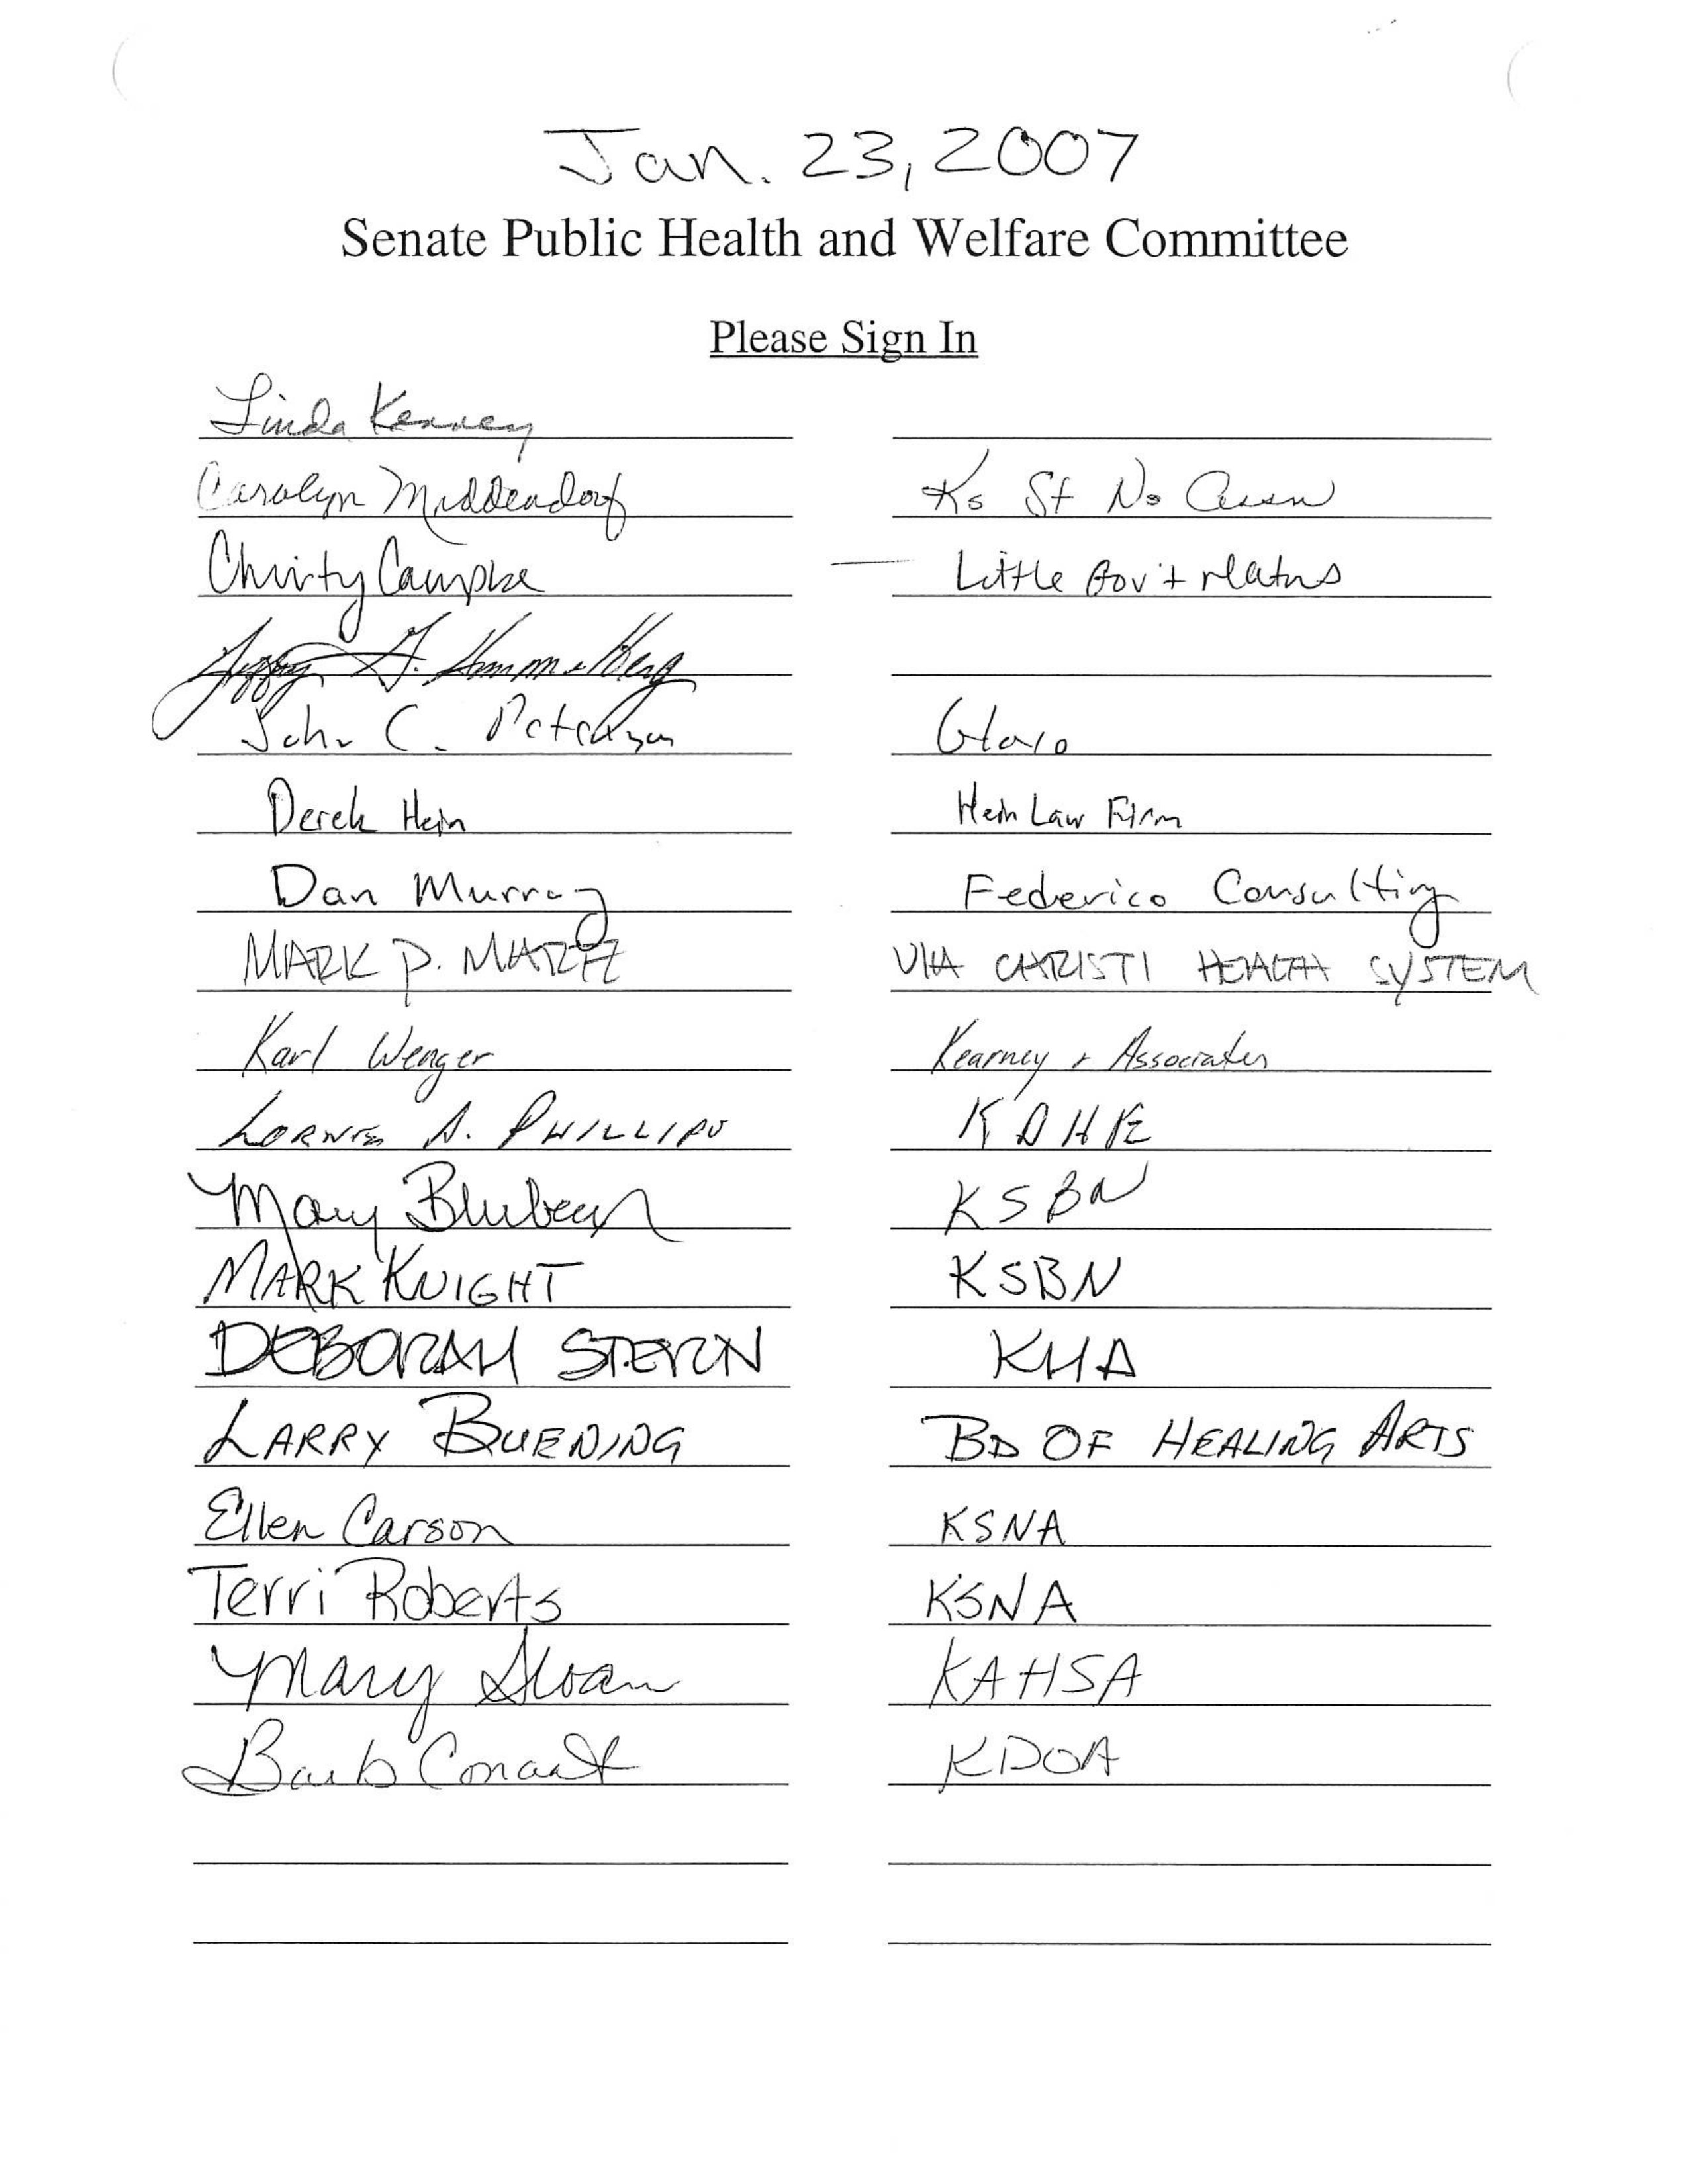 Jan. 23, 2007
Senate Public Health and Welfare Committee
Please Sign In
Linda Kenney
Carolyn Middendorf Ks St Ns Assn
Christy Campbell Little Gov't
John C. Peterson
Derek Hein Hein Law Firm
Dan Murray Federico Consulting
MARK P. VIA CHRISTI HEALTH SYSTEM
Karl Wenger Kearney & Associates
A. PHILLIPS KDHE
Mary Blubaugh KSBN
MARK KNIGHT KSBN
DEBORAH STERN KHA
LARRY BUENING BD OF HEALING ARTS
Ellen Carson KSNA
Terri Roberts KSNA
Mary Sloan KAHSA
Barb Conant KDOA